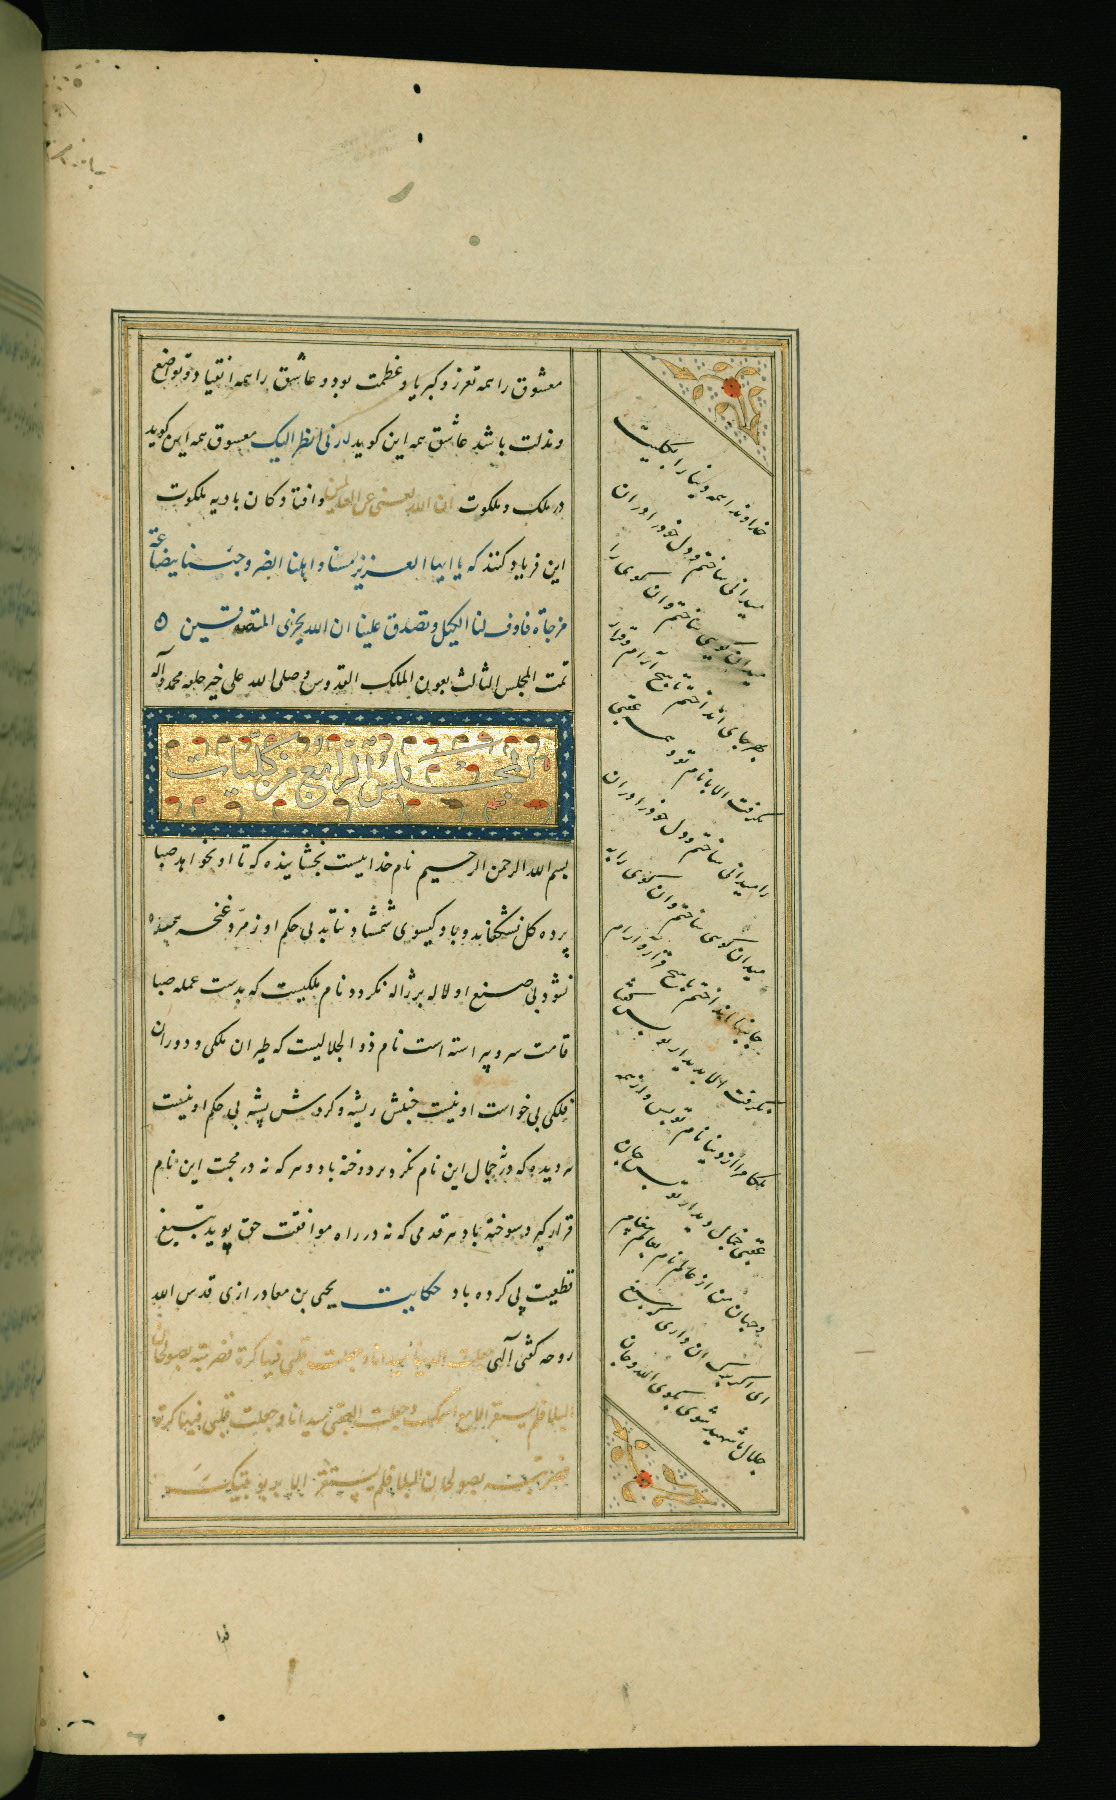 معشوق را همه تعزز و کبریا و عظمت بود و عاشق را همه انقیاد و تواضع
و مذلت باشد عاشق همه این کوید ارنی انظر الیک معشوق همه این کوید
در ملک و ملکوت ان الله لغنی عن العالمین و افتادکان بادیه ملکوت
این فریاد کنند که یا ایها العزیز مسنا و اهلنا الضر و جئنا ببضاعة
مزجاة فاوف لنا الکیل و تصدق علینا ان الله یجزی المتصدقین ه
تمت المجلس الثالث بعون الملک القدوس و صلی الله علی خیر خلقه محمد و آله
المجلس الرابع من کلیات
بسم الله الرحمن الرحیم نام خداییست بخشاینده که تا او نخواهد صبا
پرده کل نشکفاند و باد کیسوی شمشاد نتابد بی حکم او زمرد غنچه
نشود بی صنع او لاله پر ژاله نکردد نام ملکیست که بدست عمله صبا
قامت سرو پیراسته است نام ذو الجلالیست که طیران ملکی و دوران
فلکی بی خواست او نیست جنبش ریشه و کردش پشه بی حکم او نیست
هر دیده که در جمال این نام نکرد بردوخته باد و هر که نه در محبت این نام
قرار کیرد سوخته باد هر قدمی که نه در راه موافقت حق پوید بتیغ
قطیعت پی کرده باد حکایت یحیی بن معاد رازی قدس الله
روحه کفتی آلهی جعلت الدنیا میدانا و جعلت قلبی فیها کرة فضربته بصولجان
البلا فلم یستقر الا مع اسمک و جعلت العقبی میدانا و جعلت قلبی فیها کرة
فضربته بصولجان البلا فلم یستقر الا برویتک
خداوندا همه دنیا را بکلیت
میدانی ساختم و دل خود را در آن
میدان کویی ساختم و آن کوی را
بهر جای انداختم تا هیچ آرام و قرار
نکرفت الا با نام تو و همه عقبی
را میدانی ساختم و دل خود را در آن
میدان کوی ساختم و آن کوی را به
جانبها انداختم تا هیچ قرار و آرام
نکرفت الا بدیدار تو پس کفتا
ملکا مرا از دنیا نام تو بس و از همه
عقبی خیال دیدار تو بس جان
و جهان من از عالم نام بعالم پیغام
ای اکر برک آن داری که بتیغ
جلال ما شهید شوی بکوی الله و جان
فدا